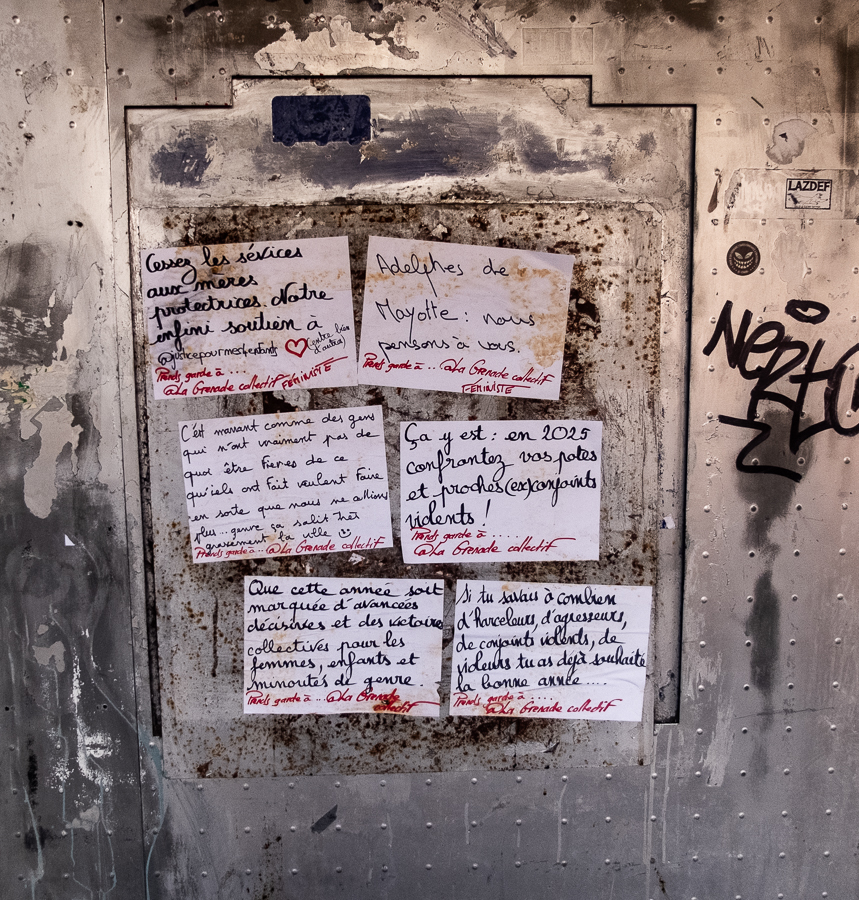 Cessez les sévices
aux mères
protectrices. Notre
enfini soutien à
@justicepourmes4enfants
(entre bien
d'autres)
Prends garde à ....
@La Grenade collectif
FÉMINISTE
Adelphes de
Mayotte : nous
pensons à vous.
Prends garde à ... @La Grenade collectif
FÉMINISTE
C'est marrant comme des gens
qui n'ont vraiment pas de
quoi être fières de ce
qu'iels ont fait veulent faire
en sorte que nous ne allions
plus ... genre ça salit trèt
gravement la ville
Prends garde à ... @La Grenade collectif
Ça y est : en 2025
confrontez vos potes
et proches (ex)conjoints
violents !
Prends garde à .....
@La Grenade collectif
Que cette année soit
marquée d'avancées
décisives et des victoires
collectives pour les
femmes, enfants et
minorités de genre.
Prends garde à ... @La Grenade
collectif
Si tu savais à combien
d'harceleurs, d'agresseurs,
de conjoints violents, de
violeurs tu as déjà souhaité
la bonne année ....
Prends garde à ....
@La Grenade collectif
LAZDEF